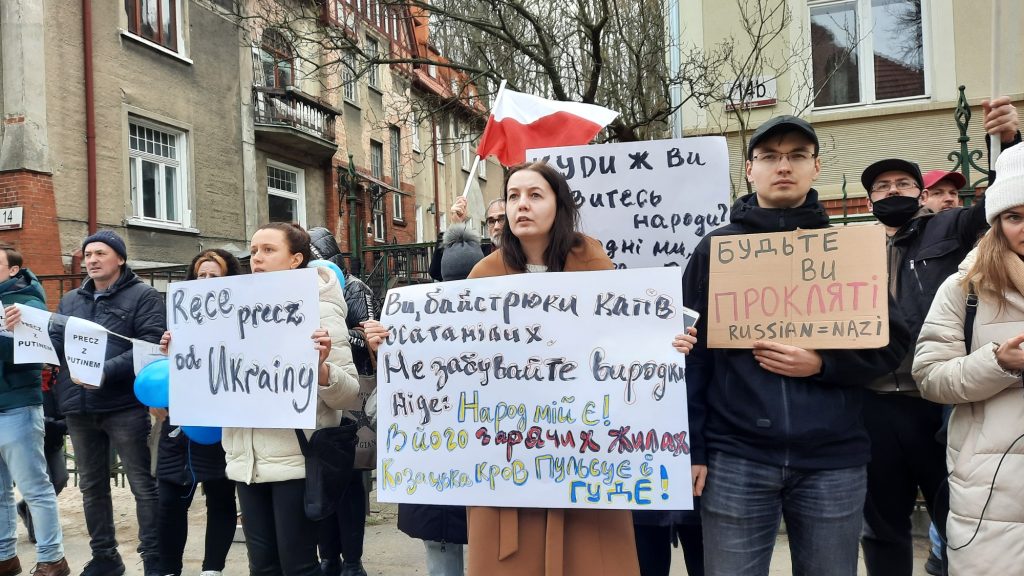 14
14b
PRECZ
Z
PUTINEM
PRECZ
Z
PUTINEM
Ręce precz
od Ukrainy
Ви, байстрюки катів
осатанілих,
Не забувайте виродки
Ніде:
Народ мій є!
В його гарячих жилах
Козацька кров пульсує й
гуде!
уди ж ви
витесь
народи?
дні ми,
БУДЬТЕ
ВИ
ПРОКЛЯТІ
RUSSIAN=NAZI